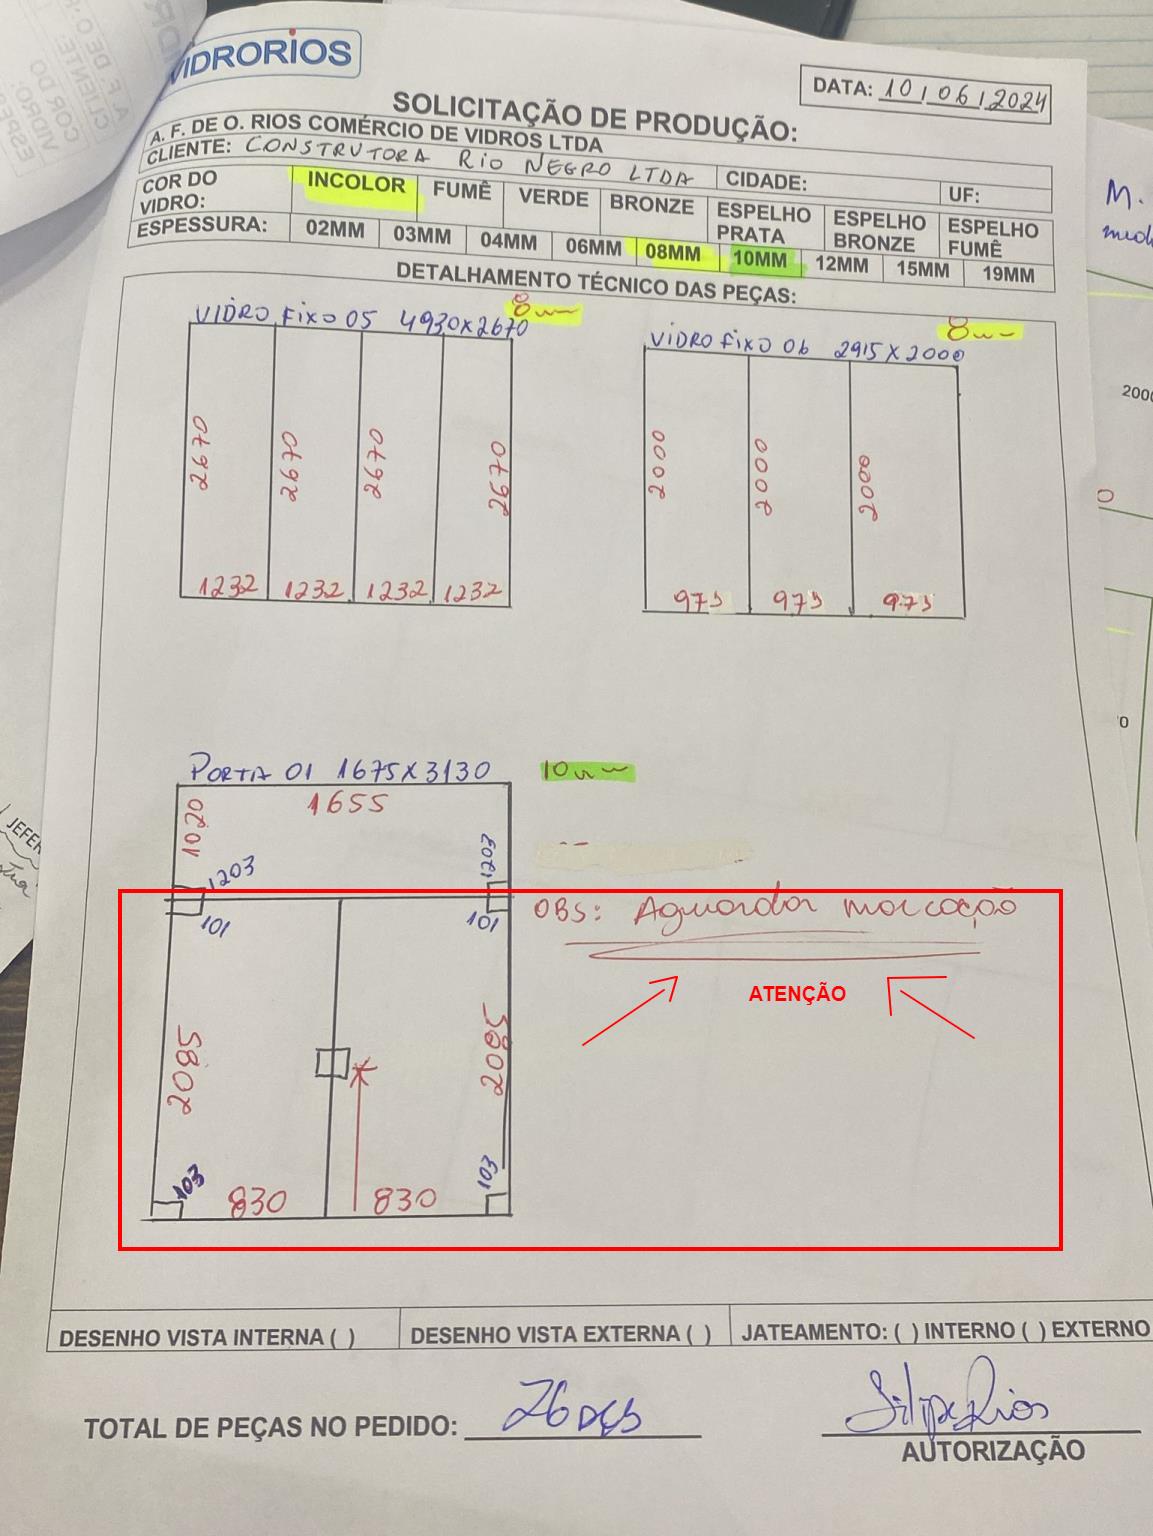 VIDRORIOS
DATA: 10/06/2024
SOLICITAÇÃO DE PRODUÇÃO:
A. F. DE O. RIOS COMÉRCIO DE VIDROS LTDA
CLIENTE: CONSTRUTORA RIO NEGRO LTDA CIDADE: UF:
COR DO VIDRO: INCOLOR FUMÊ VERDE BRONZE ESPELHO PRATA ESPELHO BRONZE ESPELHO FUMÊ
ESPESSURA: 02MM 03MM 04MM 06MM 08MM 10MM 12MM 15MM 19MM
DETALHAMENTO TÉCNICO DAS PEÇAS:
VIDRO FIXO 05 4930x2670 8mm
2670 2670 2670 2670
1232 1232 1232 1232
VIDRO FIXO 06 2915x2000 8mm
2000 2000 2000
973 973 973
PORTA 01 1675x3130 10mm
1655
1020
1203 1203
101 101
OBS: Aguardar marcação
ATENÇÃO
2085 2085
103 103
830 830
DESENHO VISTA INTERNA ( ) DESENHO VISTA EXTERNA ( ) JATEAMENTO: ( ) INTERNO ( ) EXTERNO
TOTAL DE PEÇAS NO PEDIDO: 26 pçs
Filipe Rios
AUTORIZAÇÃO
M.
2000
JEFER